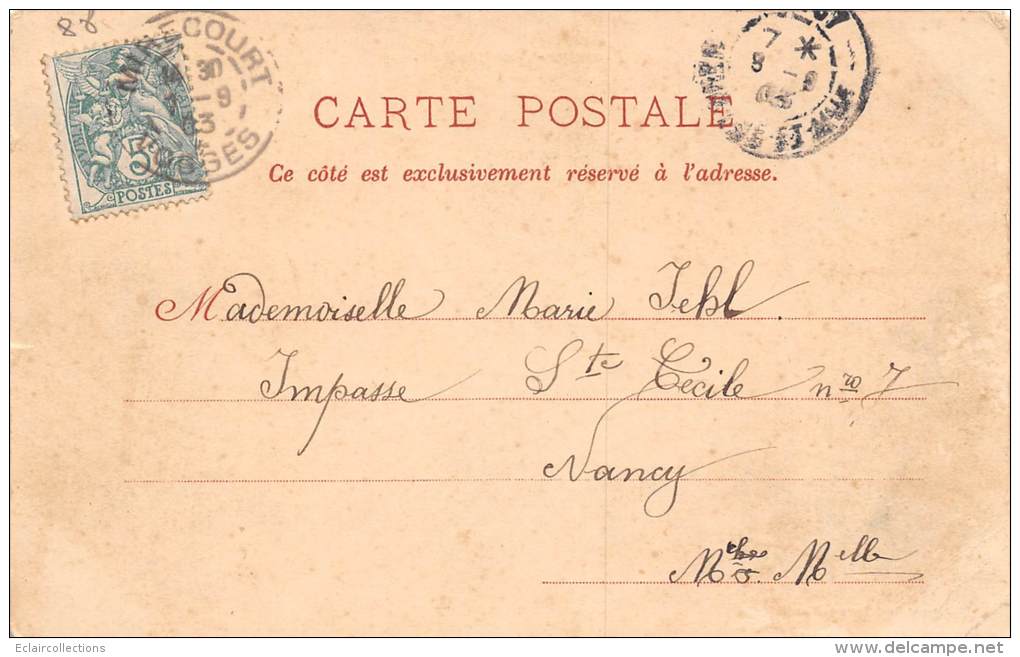 88
MIRECOURT
VOSGES
5
POSTES
CARTE POSTALE
Ce côté est exclusivement réservé à l'adresse.
Mademoiselle Marie Jehl.
Impasse Ste Cécile nro 7
Nancy
Mthe Melle
Eclaircollections
www.delcampe.net